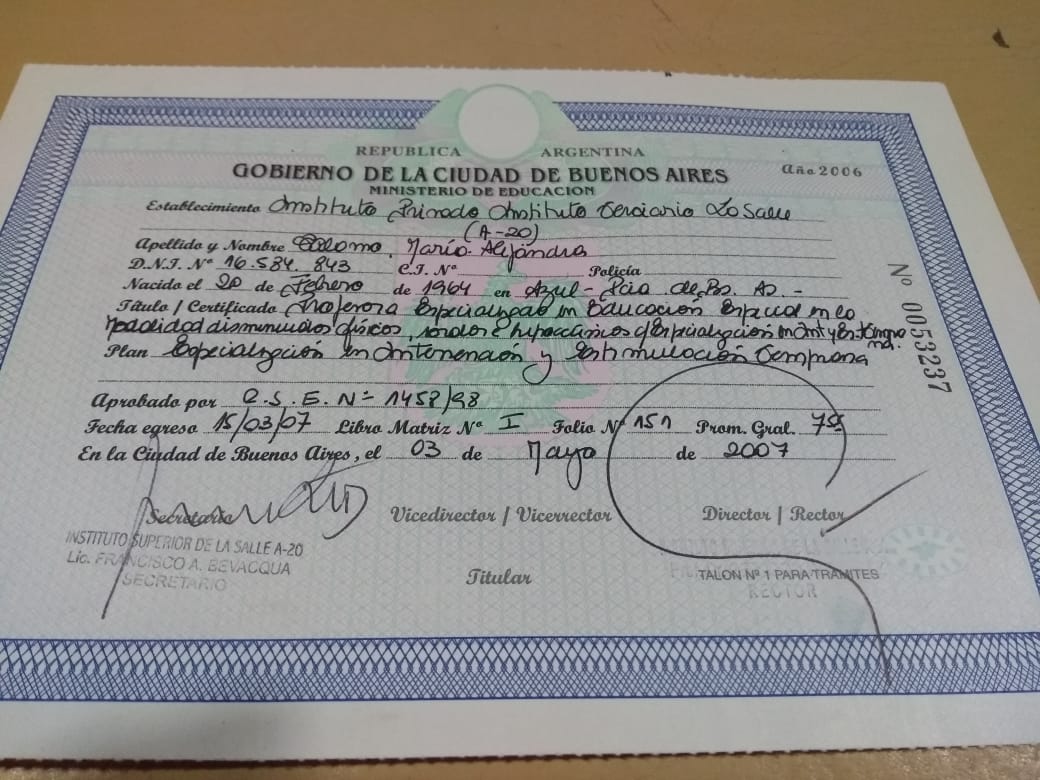 REPUBLICA ARGENTINA
GOBIERNO DE LA CIUDAD DE BUENOS AIRES
Año 2006
MINISTERIO DE EDUCACION
Establecimiento Instituto Privado Instituto Terciario La Salle
(A-20)
Apellido y Nombre María Alejandra
D.N.I. Nº 16.584.843 C.I. Nº Policía
Nacido el 20 de Febrero de 1964 en Azul - Pcia de Bs. As. -
Título / Certificado Profesora Especializada en Educación Especial en la
modalidad disminuidos físicos, sordos e hipoacúsicos c/Especialización en
Plan Especialización en Intervención y Estimulación Temprana
Aprobado por R.S.E. Nº 1458/98
Fecha egreso 15/03/07 Libro Matriz Nº I Folio Nº 151 Prom. Gral.
En la Ciudad de Buenos Aires, el 03 de Mayo de 2007
Secretario Vicedirector / Vicerrector Director / Rector
INSTITUTO SUPERIOR DE LA SALLE A-20
Lic. FRANCISCO A. BEVACQUA
SECRETARIO
Titular
TALON Nº 1 PARA TRAMITES
RECTOR
No 0053237